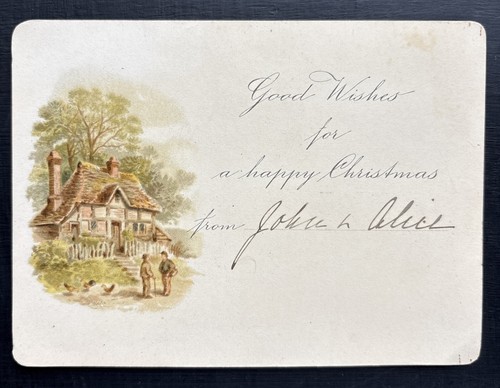 Good Wishes
for
a happy Christmas
from John & Alice